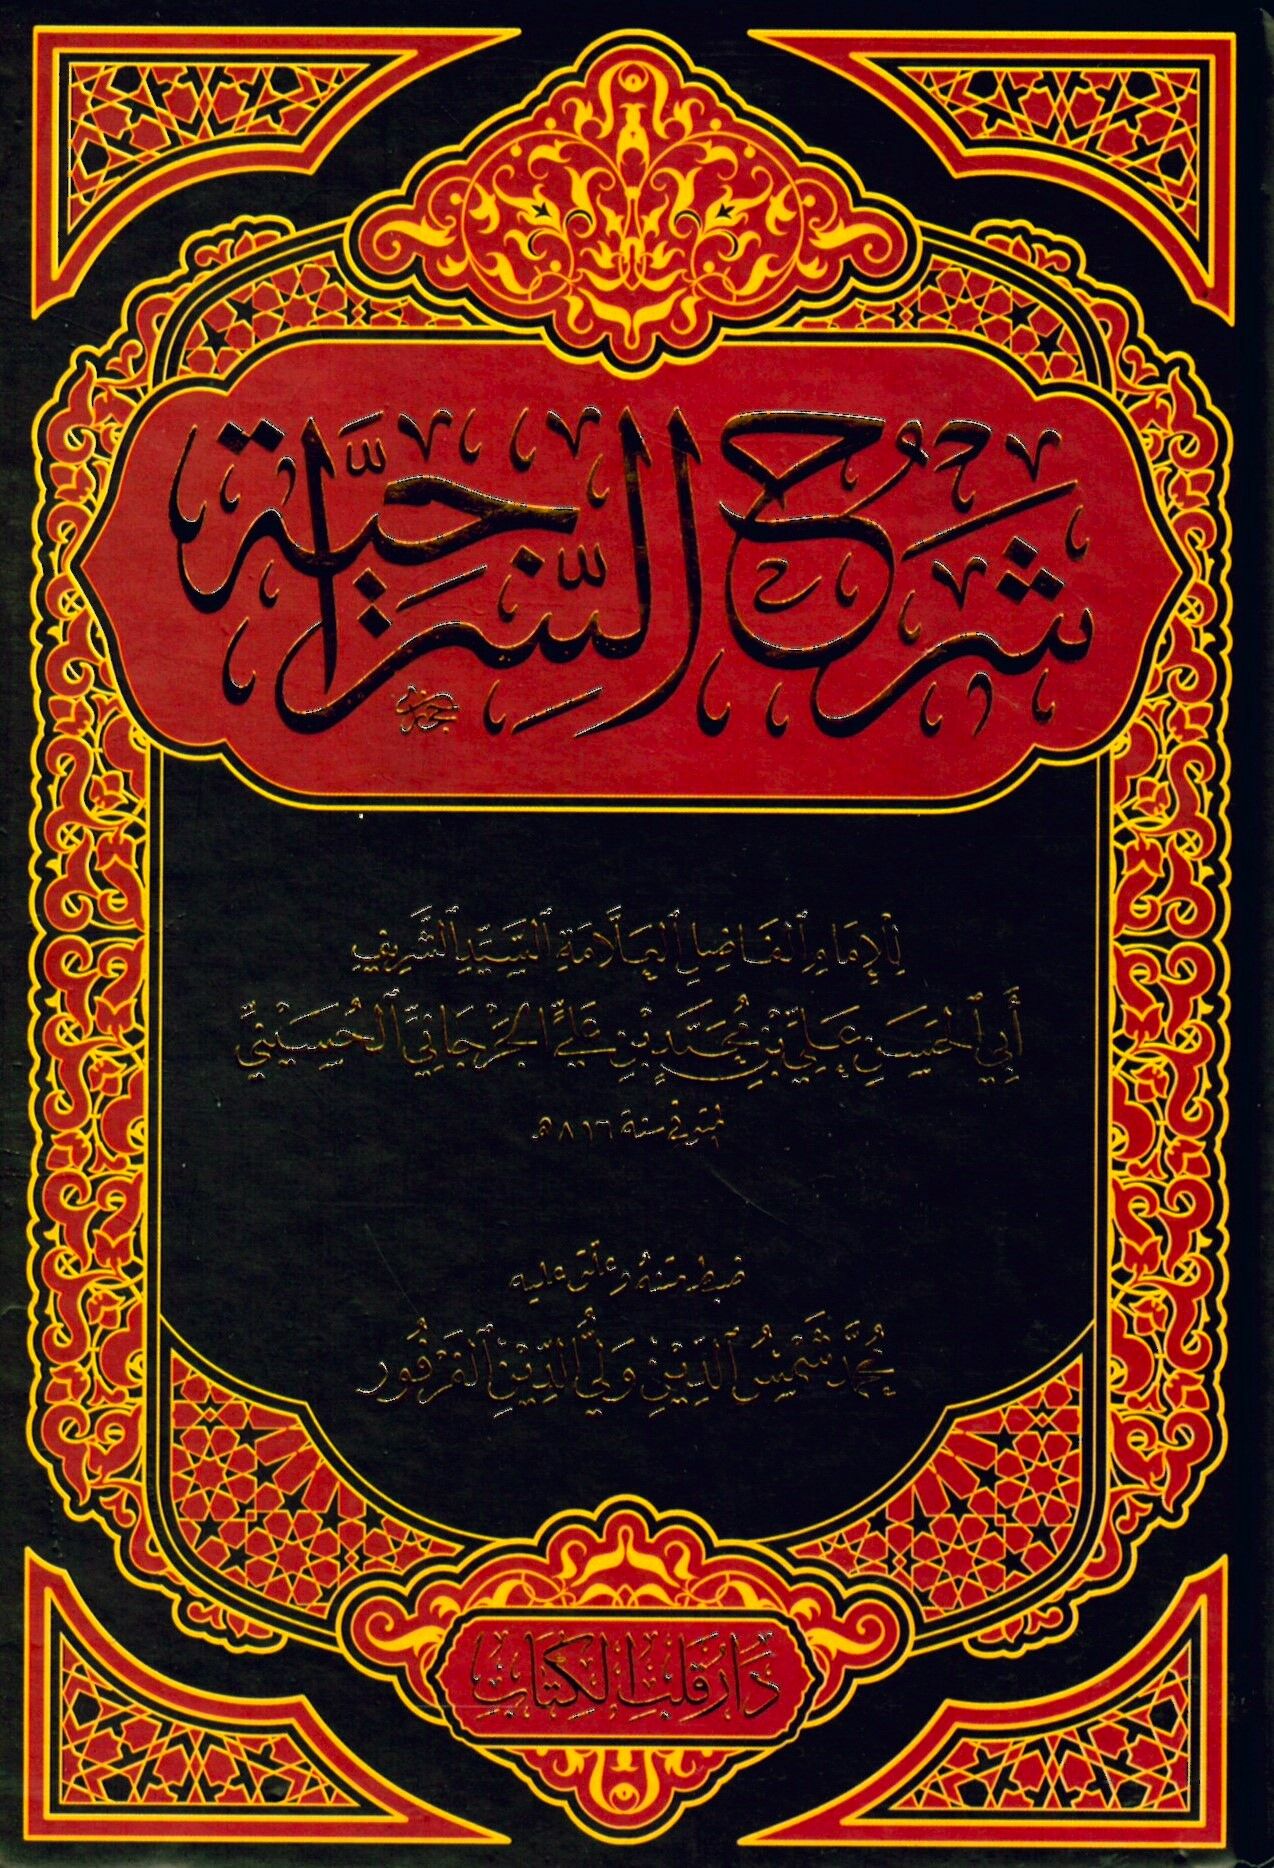 شَرْحُ السِّرَاجِيَّةِ
لِلْإِمَامِ الْفَاضِلِ الْعَلَّامَةِ السَّيِّدِ الشَّرِيفِ
أَبِي الْحَسَنِ عَلِيِّ بْنِ مُحَمَّدِ بْنِ عَلِيٍّ الْجُرْجَانِيِّ الْحُسَيْنِيِّ
المتوفى سنة ٨١٦ هـ
ضبط متنه وعلق عليه
مُحَمَّد شَمْسُ الدِّيْنِ وَلِيُّ الدِّيْنِ الْفَرْفُور
دَارُ قَلْبِ الْكِتَابِ